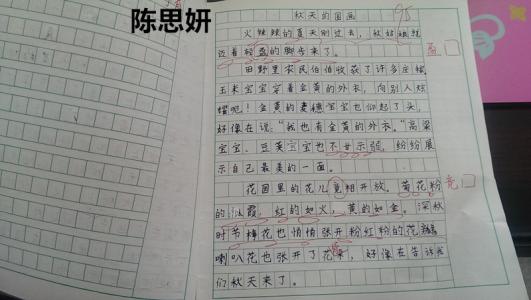 陈思妍
95
秋天的图画
火辣辣的夏天刚过去，秋姑娘就
迈着轻盈的脚步来了。
盈
田野里农民伯伯收获了许多庄稼，
玉米宝宝穿着金黄的外衣，向别人炫
耀呢！金黄的麦穗宝宝也仰起了头，
好像在说：“我也有金黄的外衣。”高粱
宝宝、豆荚宝宝也不甘示弱，纷纷展
示自己最美的一面。
花园里的花儿竟相开放。菊花粉
竞
的似霞，红的如火，黄的如金。深秋
时节梅花也悄悄张开粉红粉的花瓣
喇叭花也张开了花，好像在告诉我
们秋天来了。